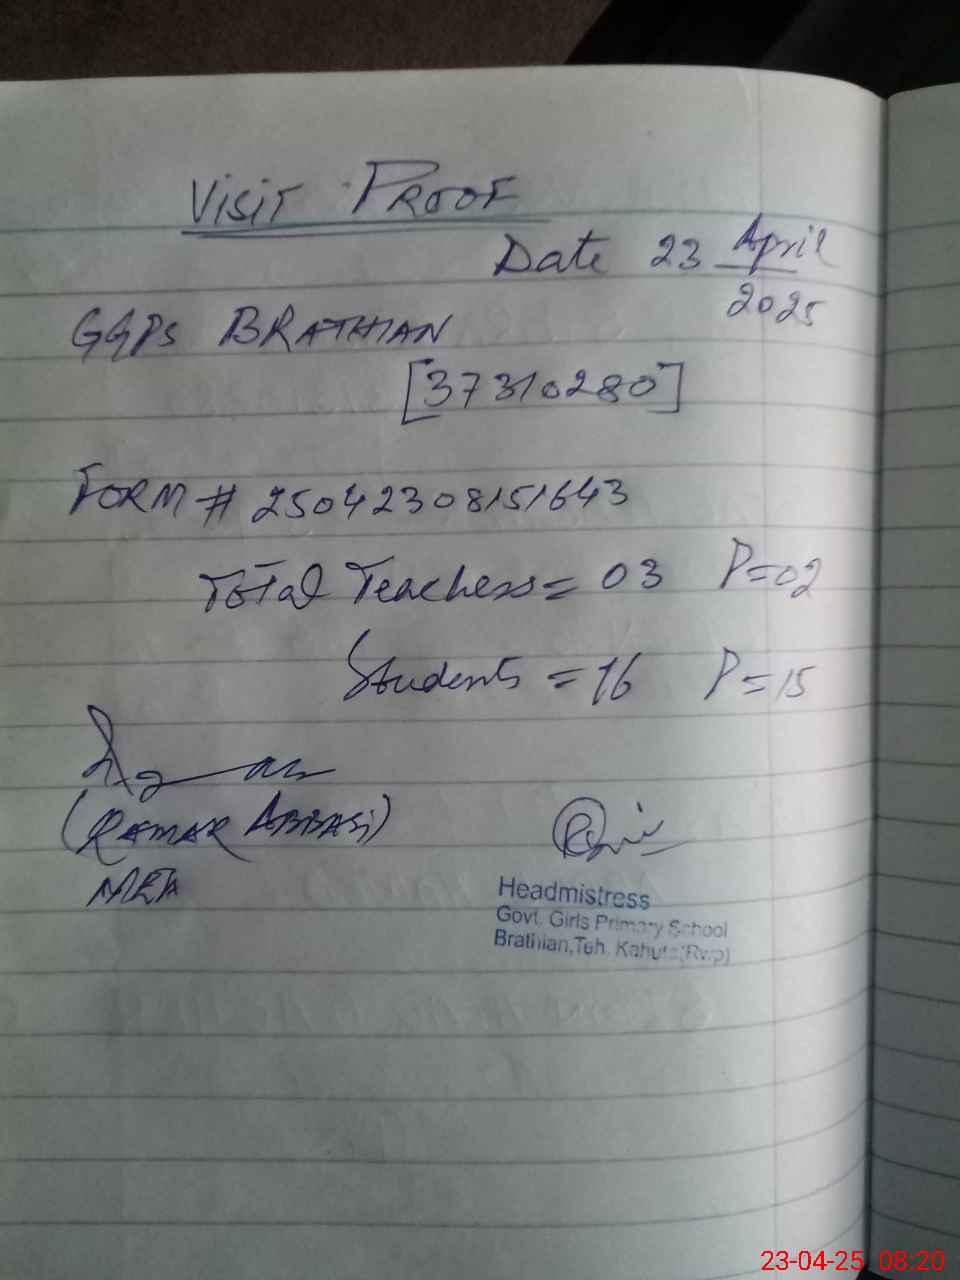 Visit Proof
Date 23 April
2025
GGPS BRATHIAN
[37310280]
FORM # 25042308151643
Total Teachers = 03 P=02
Students = 16 P=15
(QAMAR ABBASI)
MEA
Headmistress
Govt. Girls Primary School
Brathian,Teh. Kahuta(Rwp)
23-04-25 08:20